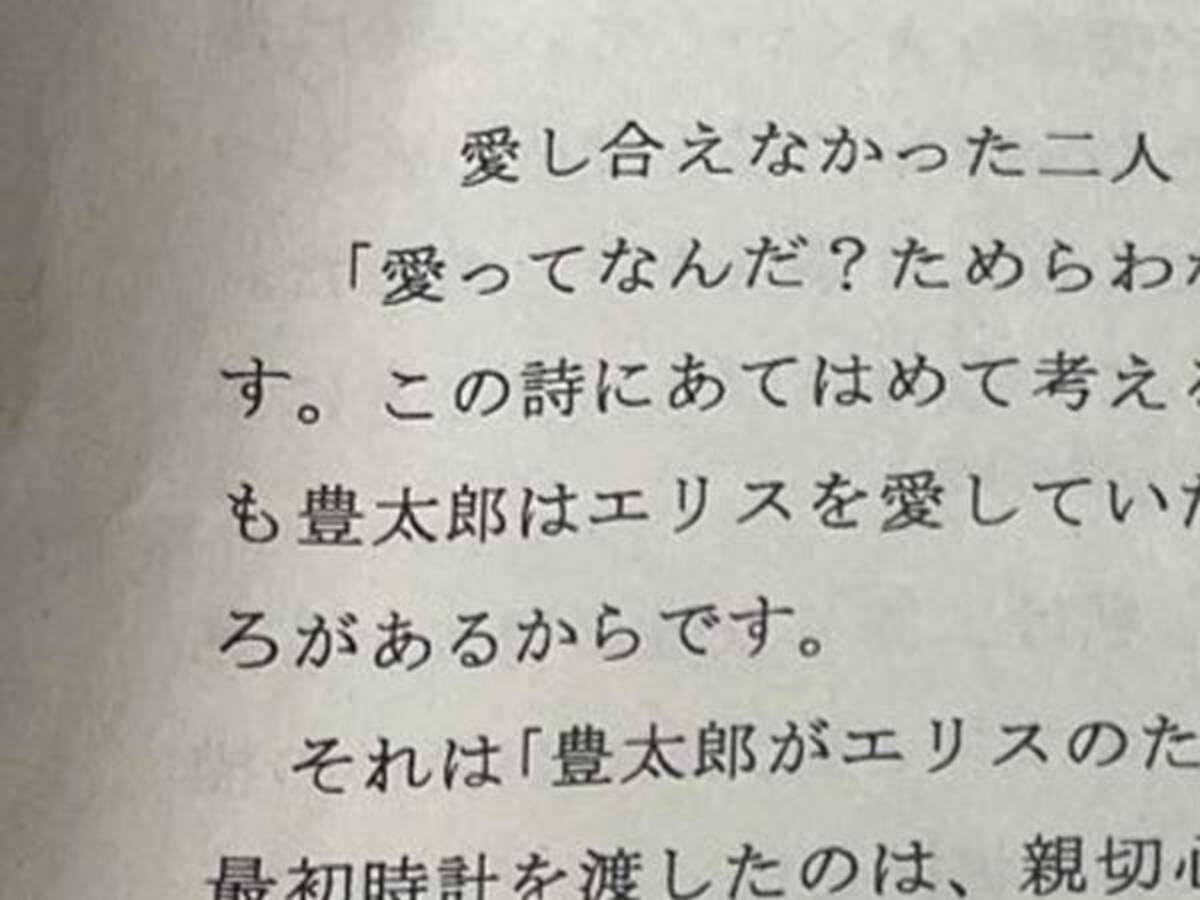 愛し合えなかった二人
「愛ってなんだ？ためらわ
す。この詩にあてはめて考え
も豊太郎はエリスを愛してい
ろがあるからです。
それは「豊太郎がエリスのた
最初時計を渡したのは、親切